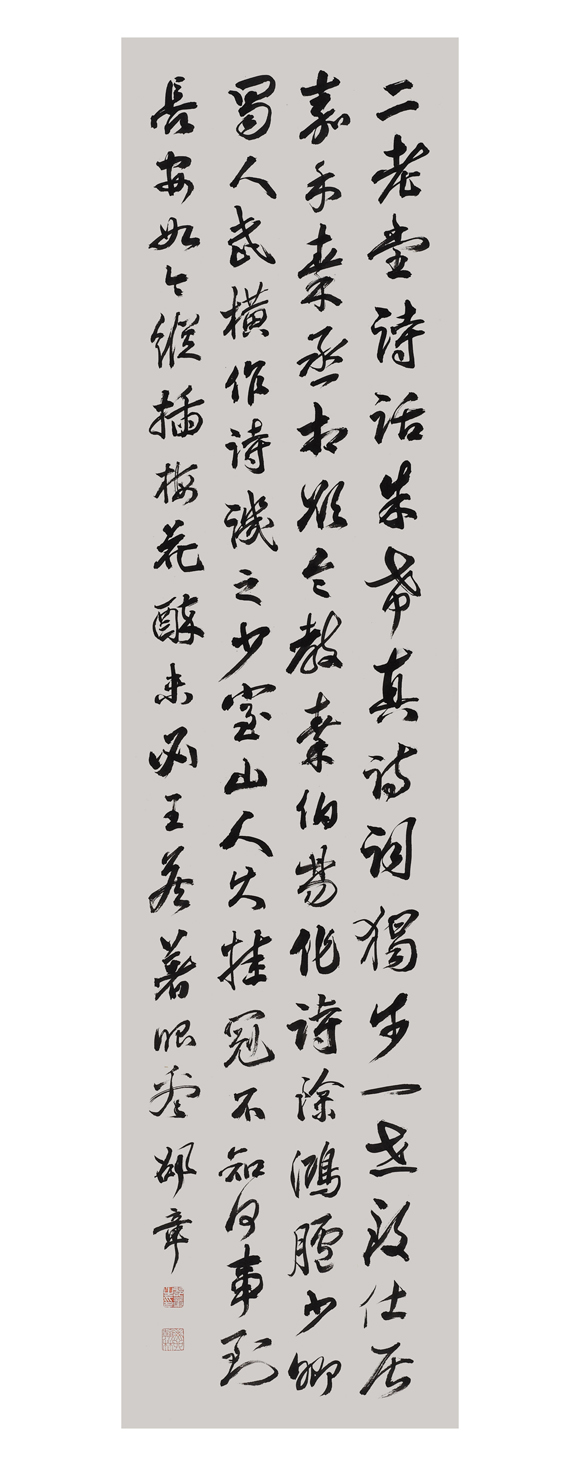 二老堂詩話朱希真詩詞獨步一世致仕居
嘉禾秦丞相欲令教秦伯昜作詩除鴻臚少卿
蜀人武橫作詩譏之少室山人久挂冠不知何事到
長安如今縱插梅花醉未必王侯著眼看 邵章